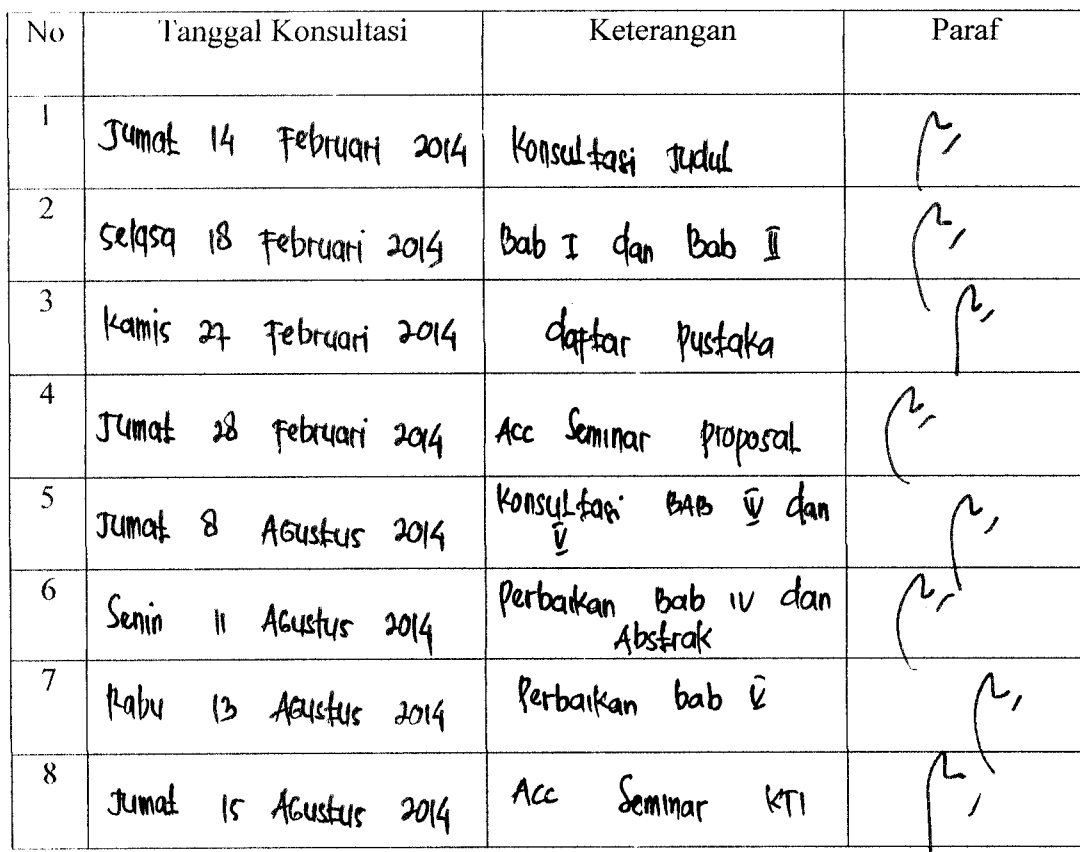 No Tanggal Konsultasi Keterangan Paraf
1 Jumat 14 Februari 2014 Konsultasi Judul
2 Selasa 18 Februari 2014 Bab I dan Bab II
3 Kamis 27 Februari 2014 daftar Pustaka
4 Jumat 28 Februari 2014 Acc Seminar proposal
5 Jumat 8 Agustus 2014 Konsultasi BAB IV dan
V
6 Senin 11 Agustus 2014 Perbaikan Bab IV dan
Abstrak
7 Rabu 13 Agustus 2014 Perbaikan bab V
8 Jumat 15 Agustus 2014 Acc Seminar KTI